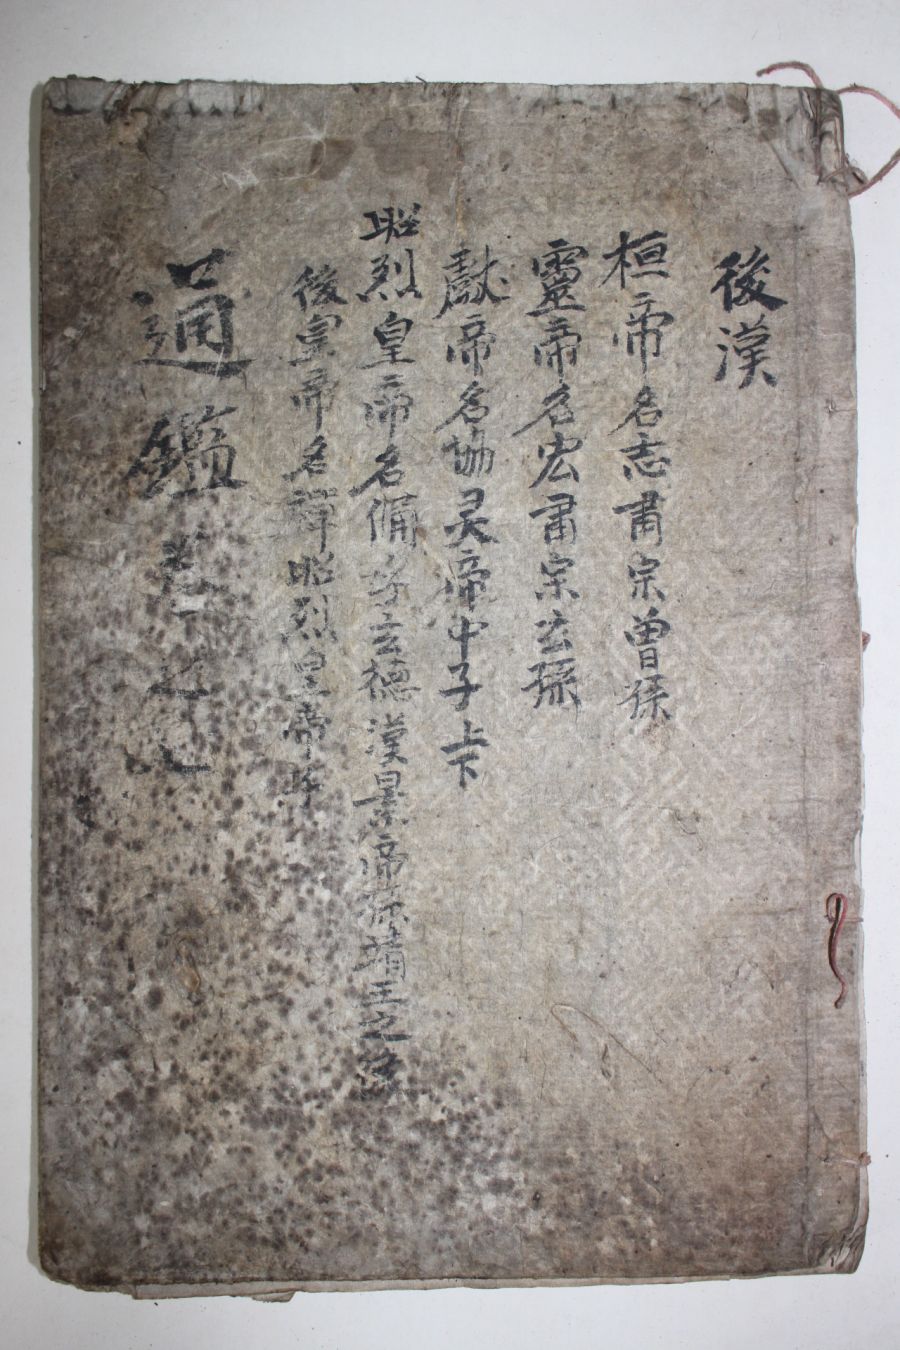 後漢
桓帝名志肅宗曾孫
靈帝名宏肅宗玄孫
獻帝名協灵帝中子上下
昭烈皇帝名備字玄德漢景帝孫靖王之後
後皇帝名禪昭烈皇帝子
通鑑卷之